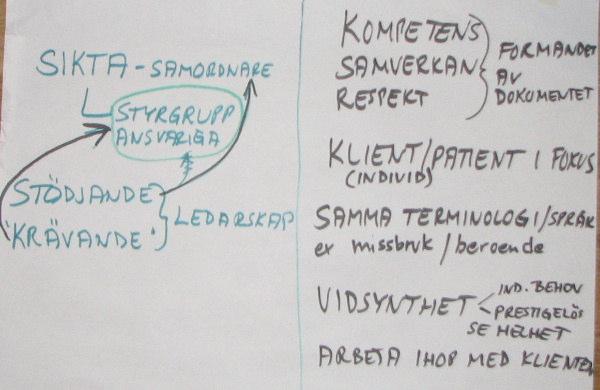 SIKTA - SAMORDNARE
STYRGRUPP
ANSVARIGA
STÖDJANDE
'KRÄVANDE'
LEDARSKAP
KOMPETENS
SAMVERKAN
RESPEKT
FORMANDET
AV
DOKUMENTET
KLIENT/PATIENT I FOKUS
(INDIVID)
SAMMA TERMINOLOGI/SPRÅK
ex missbruk/beroende
VIDSYNTHET
IND. BEHOV
PRESTIGELÖS
SE HELHET
ARBETA IHOP MED KLIENTEN